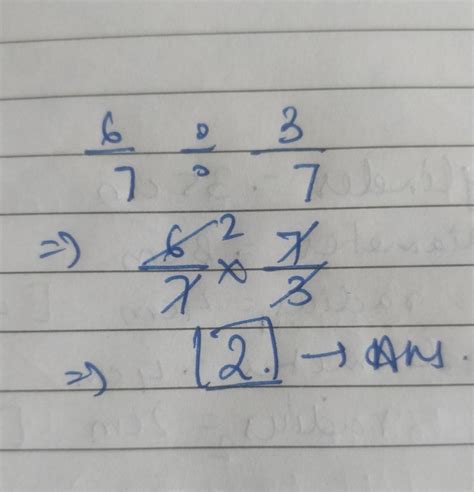 6/7 ÷ 3/7
⇒ 6/7 2 × 7/3
⇒ 2. → Ans.